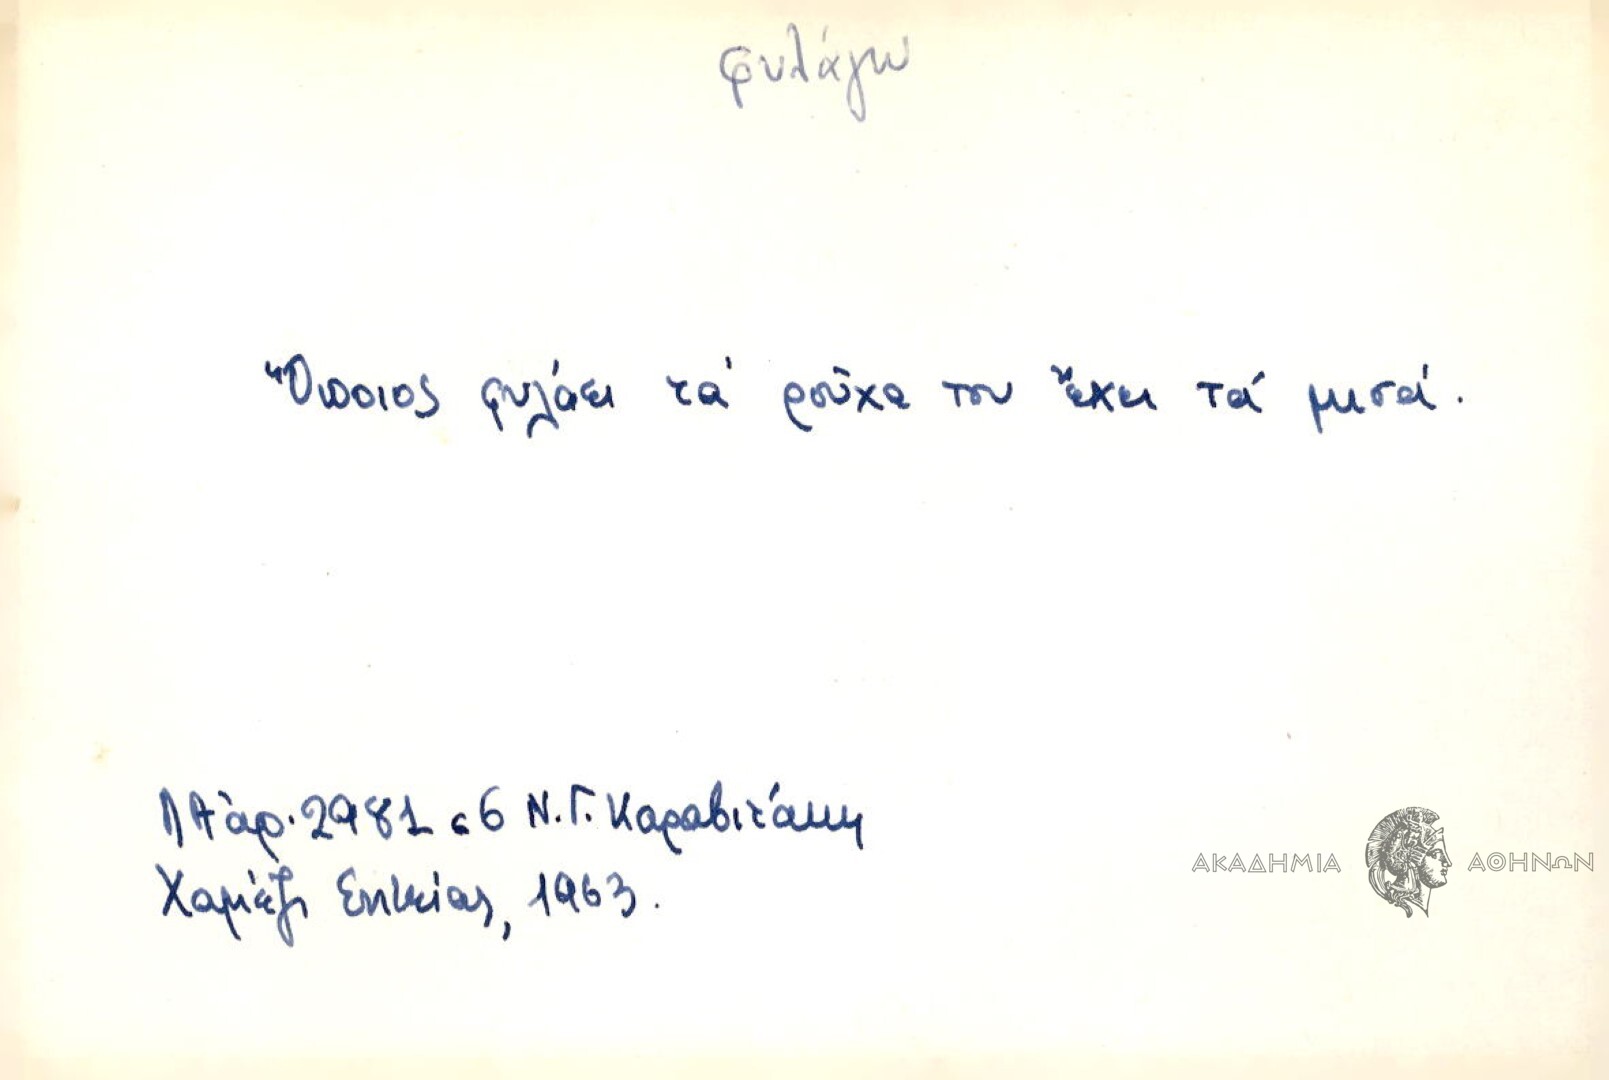 φυλάγω
Ὅποιος φυλάει τά ροῦχα του ἔχει τά μισά.
ΛΑ ἀρ. 2981 σ 6 Ν. Γ. Καραβιτάκη
Χαμέζι Σητείας, 1963.
ΑΚΑΔΗΜΙΑ ΑΘΗΝΩΝ